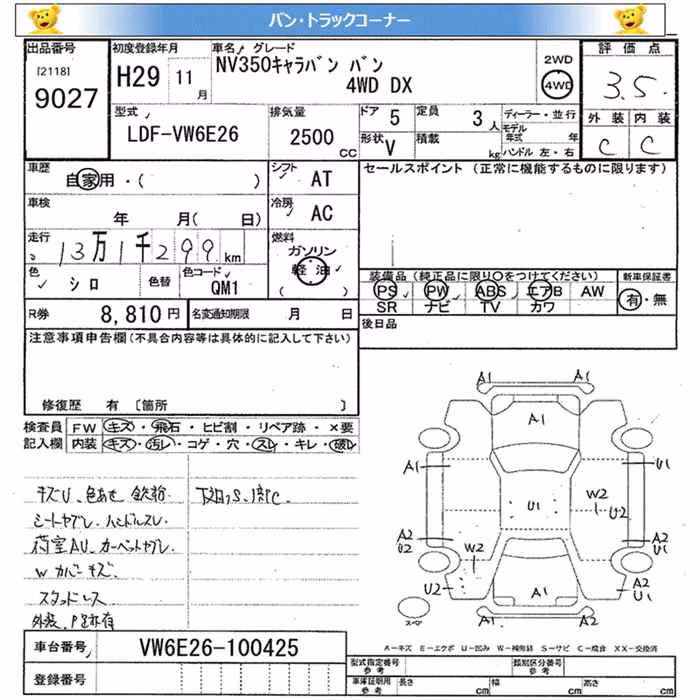 バン・トラックコーナー
出品番号 初度登録年月 車名 グレード 評価点
[2118] 9027
H29 11月
NV350キャラバン バン
4WD DX
2WD
4WD
3.5
型式 排気量 ドア 5 定員 3人 ディーラー・並行
LDF-VW6E26 2500CC
モデル年式 年
形状 V 積載 kg ハンドル 左・右
外装 内装
C C
車歴 シフト セールスポイント (正常に機能するものに限ります)
自家用・( ) AT
車検 冷房
年 月( 日) AC
走行 燃料
13万1千299km ガソリン
軽油
( )
色 シロ 色替 色コード QM1
装備品 (純正品に限り○をつけてください) 新車保証書
PS PW ABS エアB AW 有・無
SR ナビ TV カワ
R券 8,810円 名変通知期限 月 日
後日品
注意事項申告欄(不具合内容等は具体的に記入して下さい)
修復歴 有 〔箇所 〕
検査員 FW キズ・飛石・ヒビ割・リペア跡・×要
記入欄 内装 キズ・汚レ・コゲ・穴・スレ・キレ・破レ
キズU、色あせ 鉄粉
下廻りS、1部C
シートヤブレ、ハンドルスレ
荷室AU、カーペットヤブレ
W カバーキズ
スタッドレス
A1 A1
A1
A1 U1
U1 W2 U2
A2 U2 W2 A2 U1
U2 A2 U1
A1
A1 A2
スペア
車台番号 VW6E26-100425
登録番号
A-キズ E-エクボ U-凹み W-補修跡 S-サビ C-腐食 XX-交換済
型式指定番号 参考 類別区分番号 参考
車庫証明用 参考 長さ cm 幅 cm 高さ cm